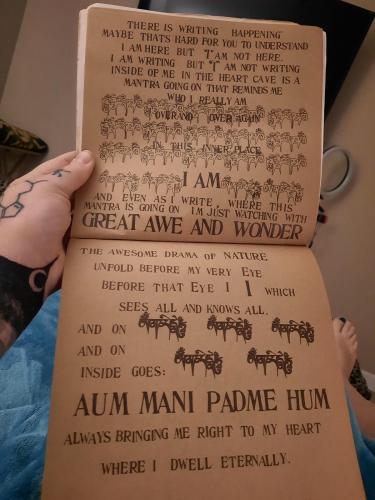 THERE IS WRITING HAPPENING
MAYBE THATS HARD FOR YOU TO UNDERSTAND
I AM HERE BUT "I" AM NOT HERE.
I AM WRITING BUT "I" AM NOT WRITING
INSIDE OF ME IN THE HEART CAVE IS A
MANTRA GOING ON THAT REMINDS ME
WHO I REALLY AM
OVER AND OVER AGAIN
IN THIS INNER PLACE
I AM
AND EVEN AS I WRITE, WHERE THIS
MANTRA IS GOING ON I'M JUST WATCHING WITH
GREAT AWE AND WONDER
THE AWESOME DRAMA OF NATURE
UNFOLD BEFORE MY VERY EYE
BEFORE THAT EYE I I WHICH
SEES ALL AND KNOWS ALL.
AND ON
AND ON
INSIDE GOES:
AUM MANI PADME HUM
ALWAYS BRINGING ME RIGHT TO MY HEART
WHERE I DWELL ETERNALLY.